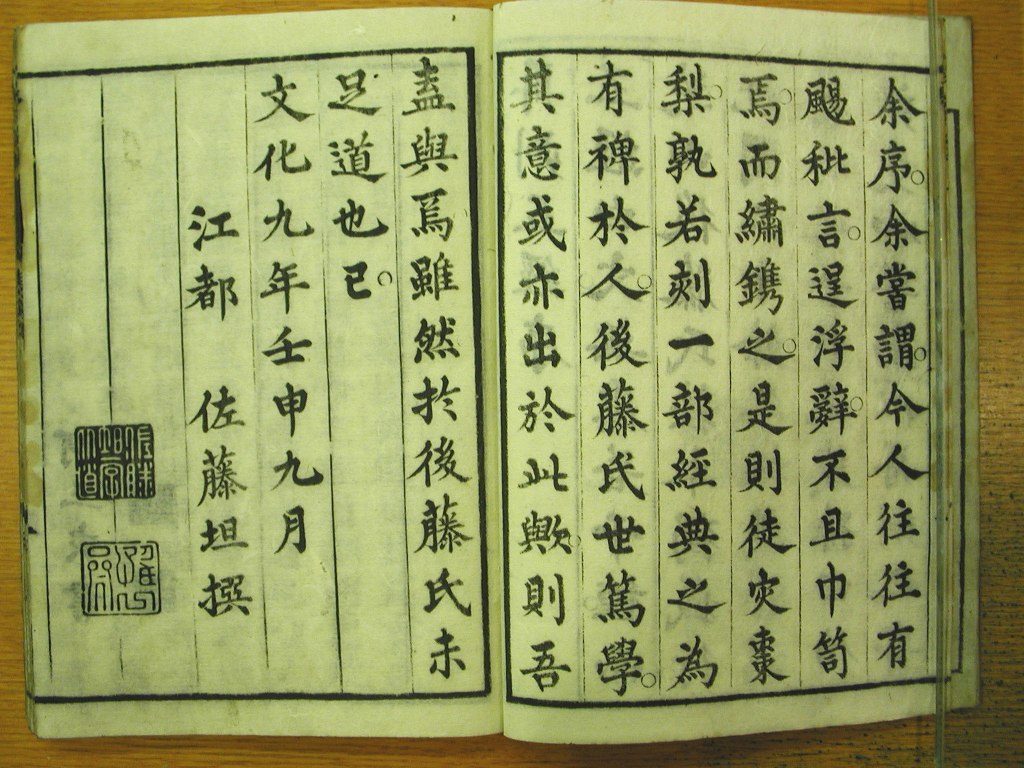 余序。余嘗謂。今人往往有
颺秕言。逞浮辭。不且巾笥
焉。而繡鐫之。是則徒灾棗
梨。孰若刻一部經典之為
有裨於人。後藤氏世篤學。
其意或亦出於此歟。則吾
盍與焉雖然於後藤氏未
足道也已。
文化九年壬申九月
江都 佐藤坦撰
佐藤坦字大道